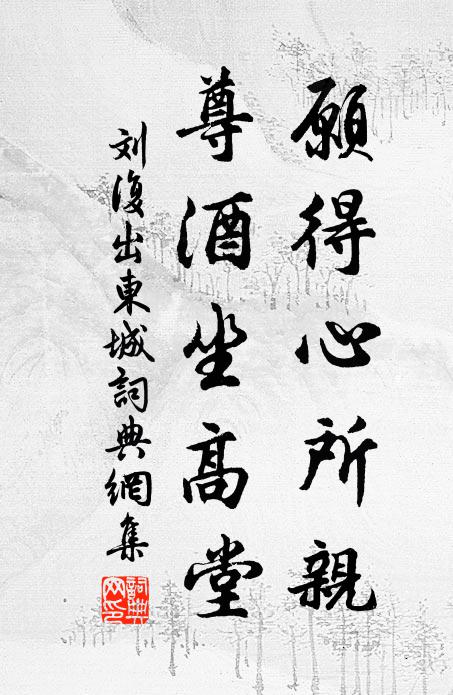 願得心所親
尊酒坐高堂
刘復出東城詞典網集
詞典網印